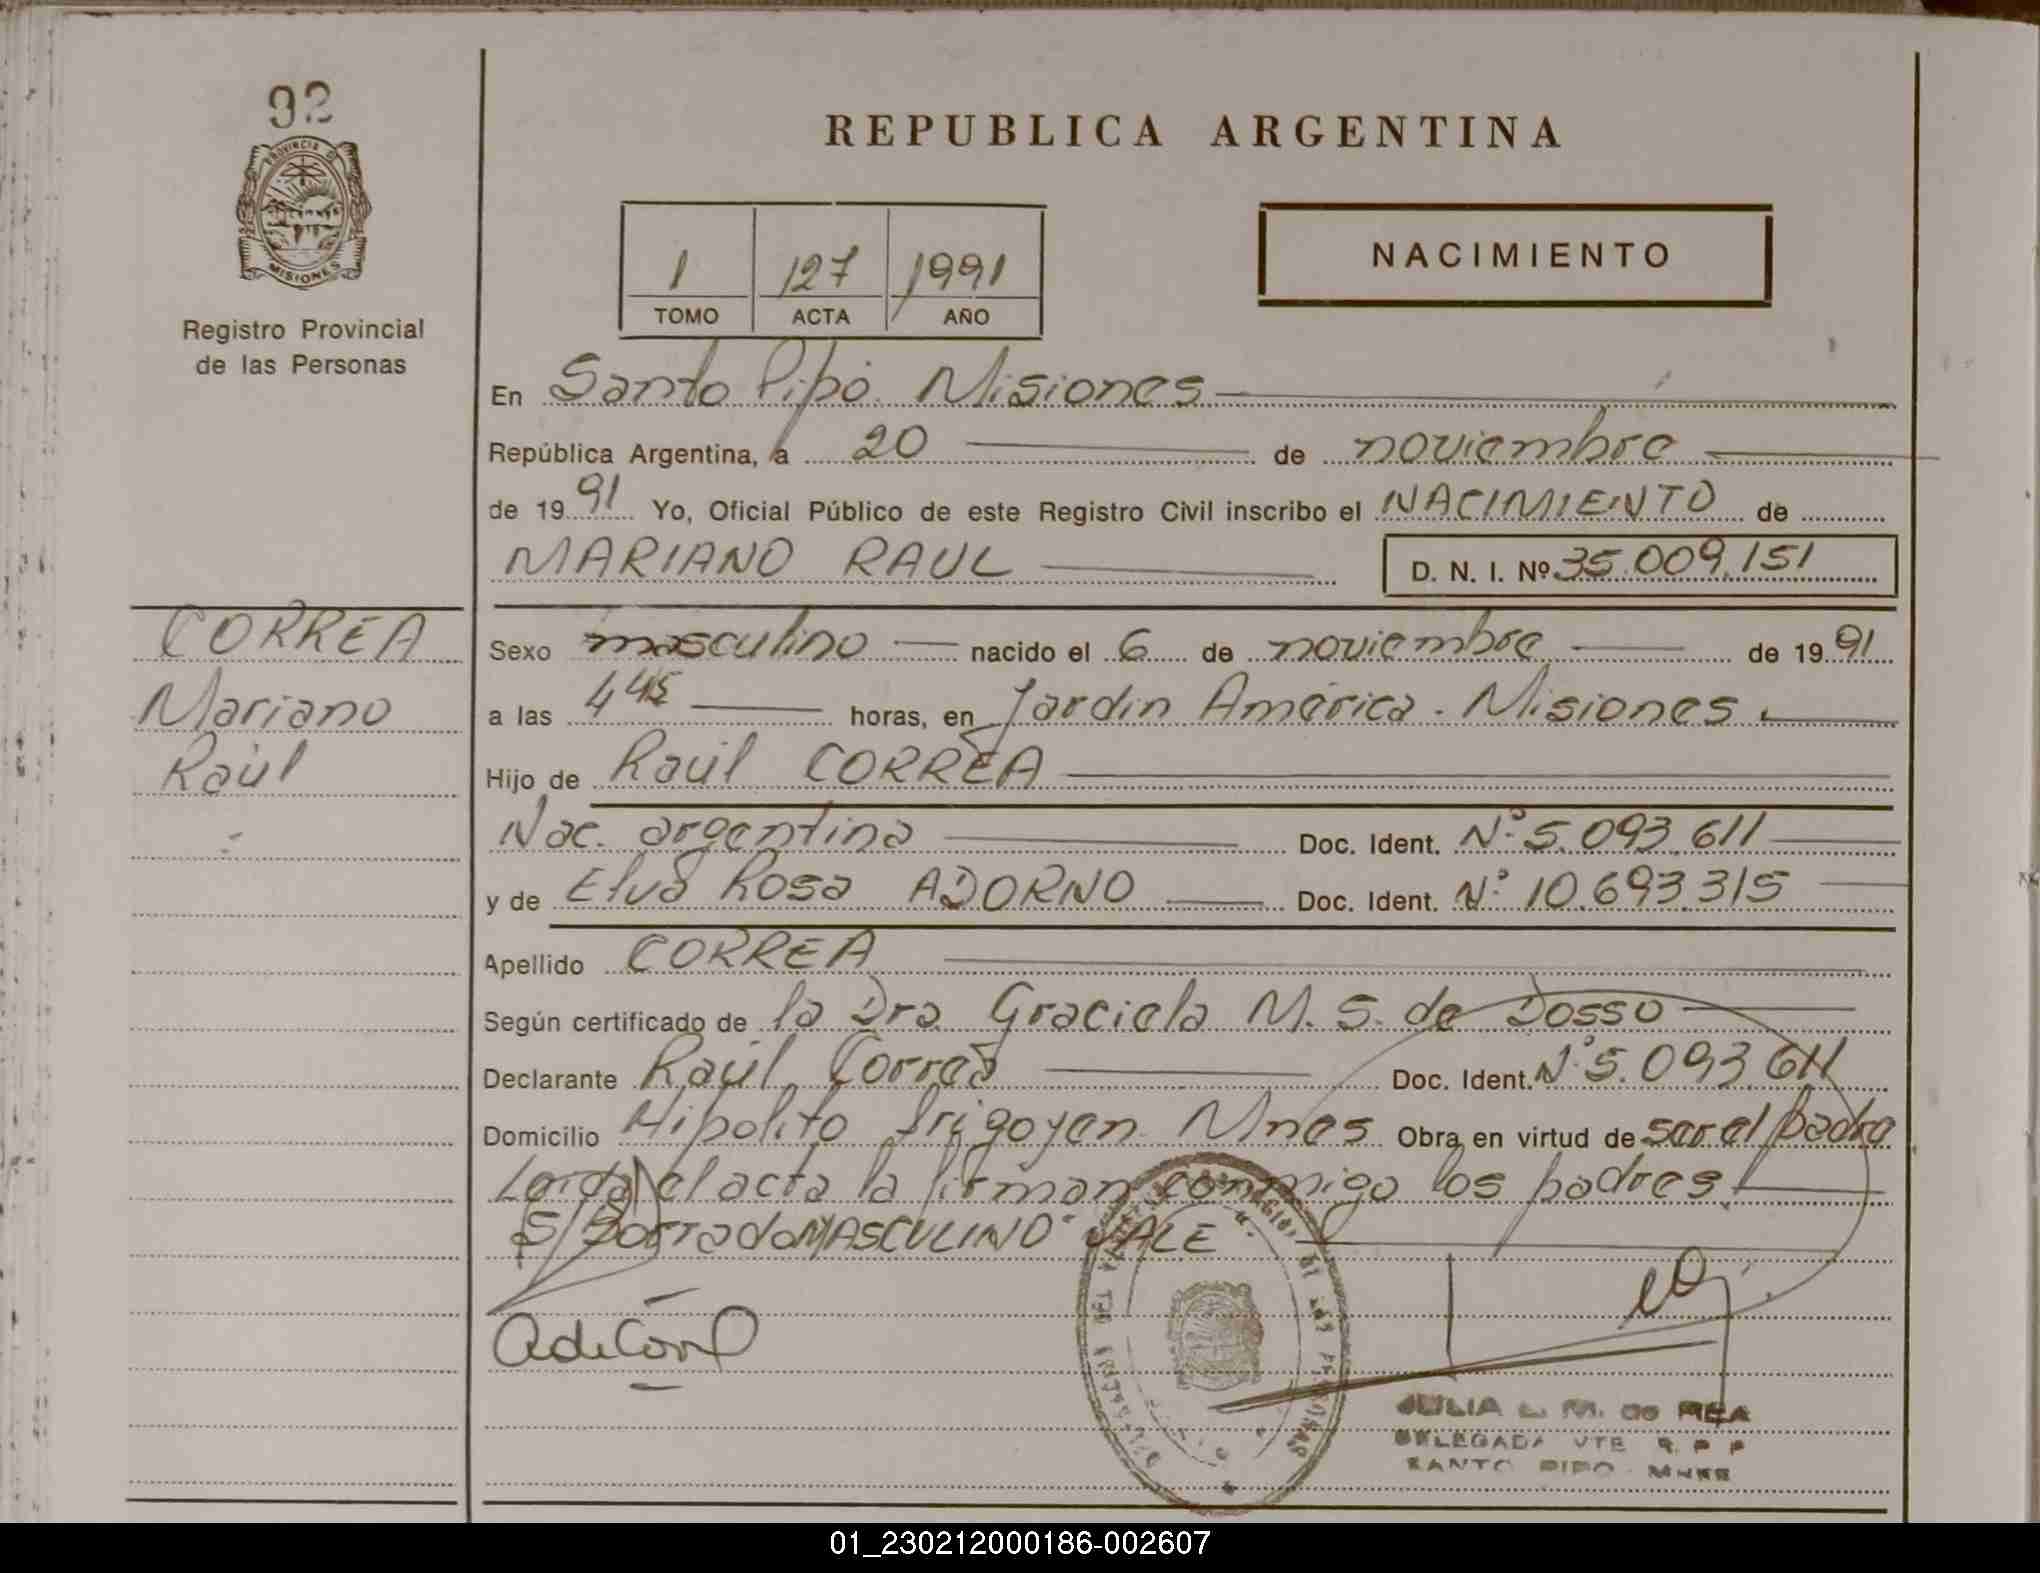 92
PROVINCIA D
MISIONES
Registro Provincial
de las Personas
REPUBLICA ARGENTINA
1 127 1991
TOMO ACTA AÑO
NACIMIENTO
En Santo Pipó. Misiones
República Argentina, a 20 de noviembre
de 1991 Yo, Oficial Público de este Registro Civil inscribo el NACIMIENTO de
MARIANO RAUL D. N. I. Nº 35.009.151
CORREA
Mariano
Raúl
Sexo masculino nacido el 6 de noviembre de 1991
a las 4 45 horas, en Jardín América. Misiones.
Hijo de Raúl CORREA
Nac. argentina Doc. Ident. Nº 5.093.611
y de Elva Rosa ADORNO Doc. Ident. Nº 10.693.315
Apellido CORREA
Según certificado de la Dra Graciela M. S. de Dosso
Declarante Raúl Correa Doc. Ident. Nº 5.093.611
Domicilio Hipolito Irigoyen Mnes Obra en virtud de ser el padre
Leída el acta la firman conmigo los padres.
S/Borrado MASCULINO" VALE".
JULIA L. M. de REA
DELEGADA VTE R P P
SANTO PIPO - MNES
01_230212000186-002607